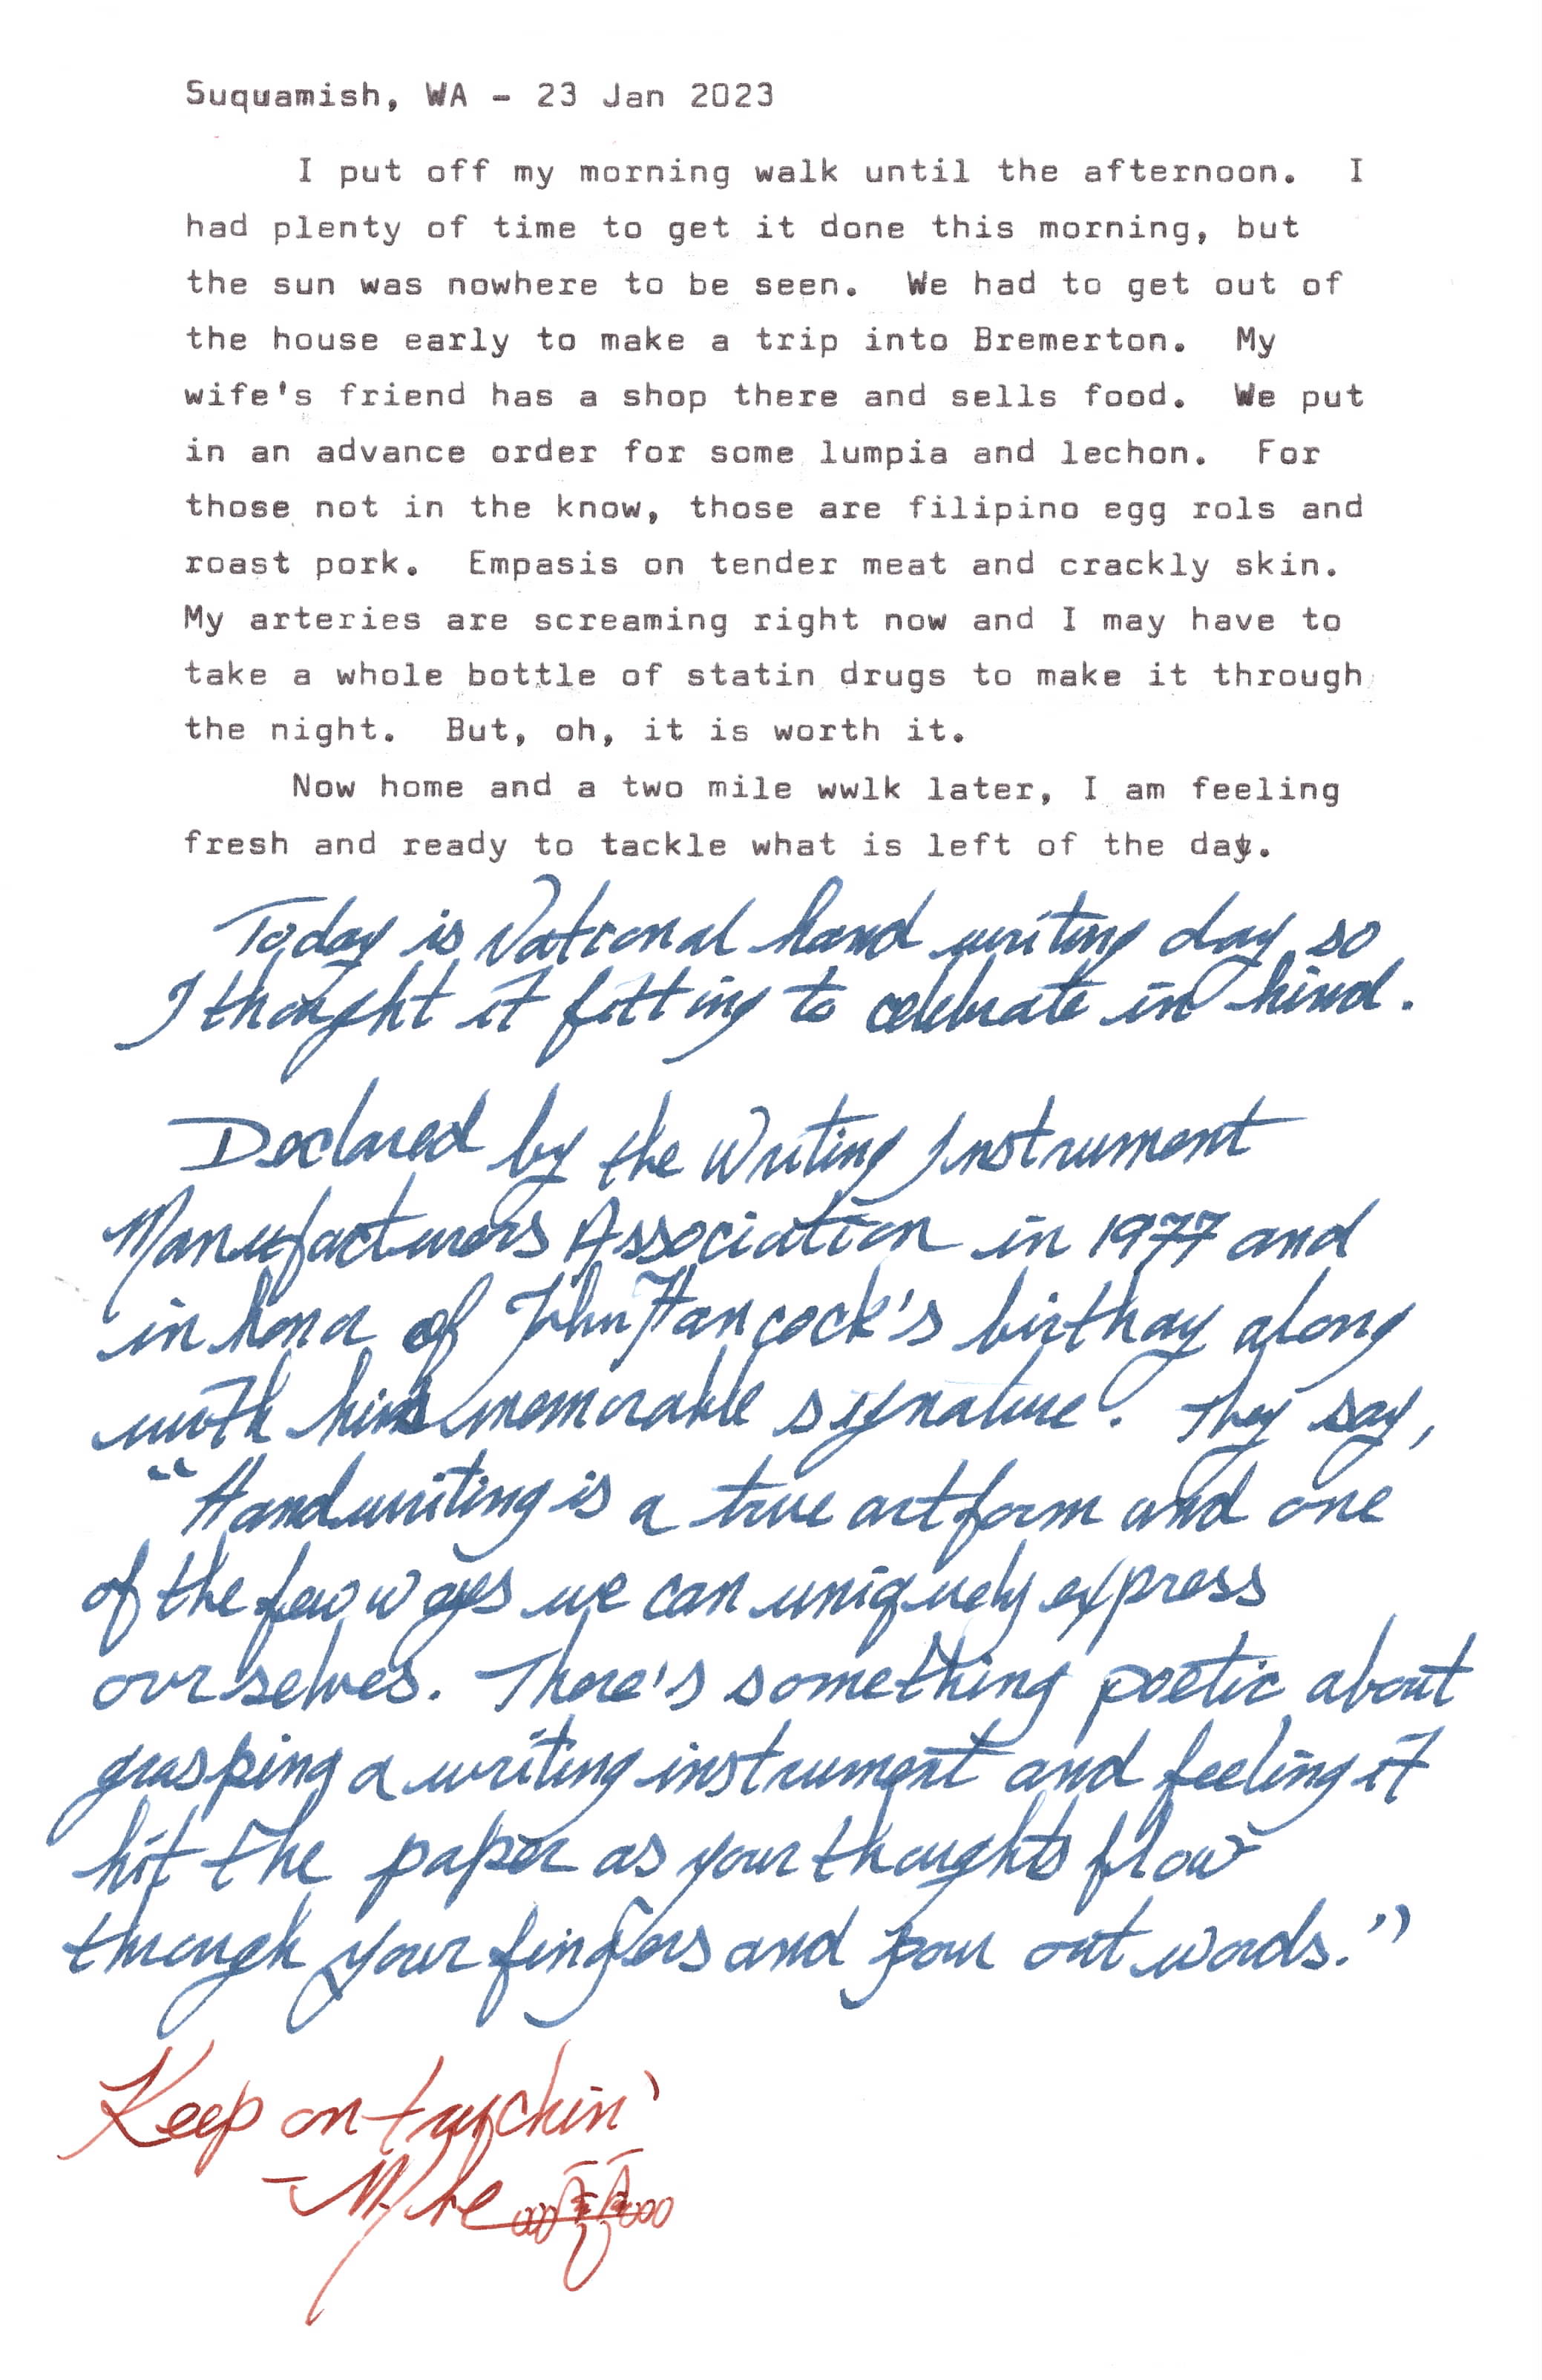 Suquamish, WA - 23 Jan 2023
I put off my morning walk until the afternoon.  I
had plenty of time to get it done this morning, but
the sun was nowhere to be seen.  We had to get out of
the house early to make a trip into Bremerton.  My
wife's friend has a shop there and sells food.  We put
in an advance order for some lumpia and lechon.  For
those not in the know, those are filipino egg rols and
roast pork.  Empasis on tender meat and crackly skin.
My arteries are screaming right now and I may have to
take a whole bottle of statin drugs to make it through
the night.  But, oh, it is worth it.
Now home and a two mile wwlk later, I am feeling
fresh and ready to tackle what is left of the day.
Today is National hand writing day so
I thought it fitting to celebrate in kind.
Declared by the Writing Instrument
Manufacturers Association in 1977 and
in honor of John Hancock's birthay along
with his memorable signature. They say,
"Handwriting is a true artform and one
of the few ways we can uniquely express
ourselves. There's something poetic about
grasping a writing instrument and feeling it
hit the paper as your thoughts flow
through your fingers and pour out words."
Keep on